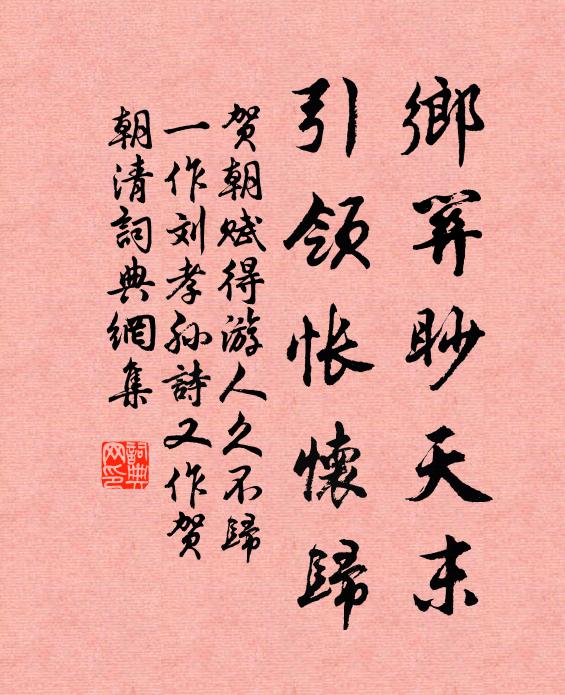 鄉关眇天末
引領悵懷歸
贺朝赋得游人久不歸
一作刘孝孙詩又作贺
朝清詞典網集
詞典
网印